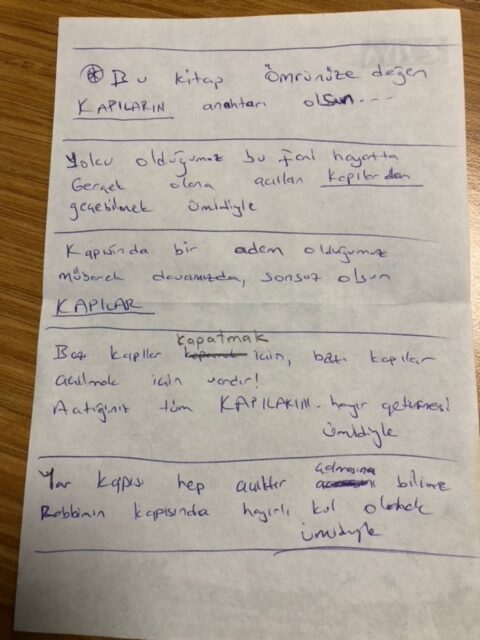 * Bu kitap ömrünüze değen
KAPILARIN anahtarı olsun...
Yolcu olduğumuz bu fani hayatta
Gerçek olana açılan kapılardan
geçebilmek ümidiyle
Kapısında bir adem olduğumuz
mübarek davamızda, sonsuz olsun
KAPILAR
kapatmak
Bazı kapılar için, bazı kapılar
açılmak için vardır!
Açtığınız tüm KAPILARIN hayır getirmesi
ümidiyle
Yar kapısı hep açıktır bilene
Rabbimin kapısında hayırlı kul olmak
ümidiyle